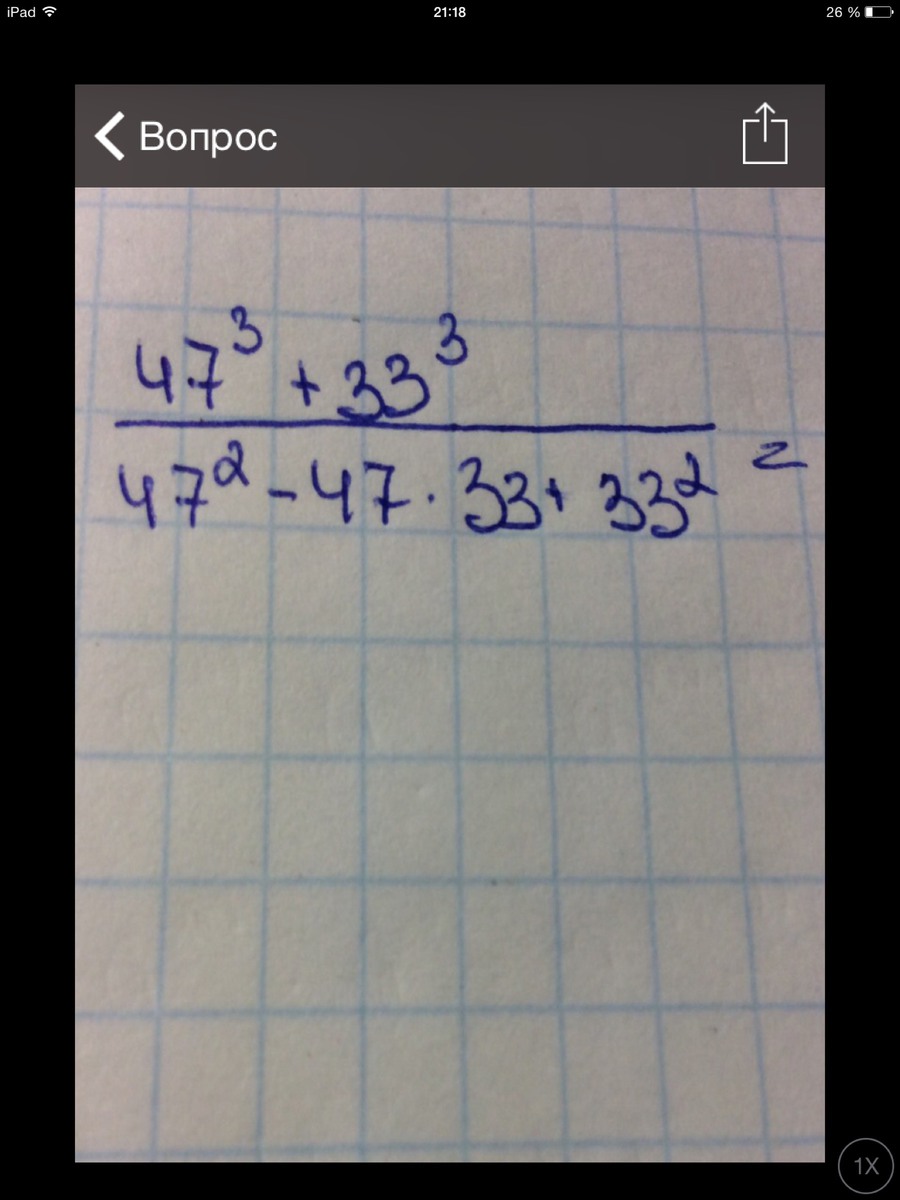 iPad 21:18 26 %
Вопрос
47³ + 33³
47² - 47 · 33 + 33² =
1X